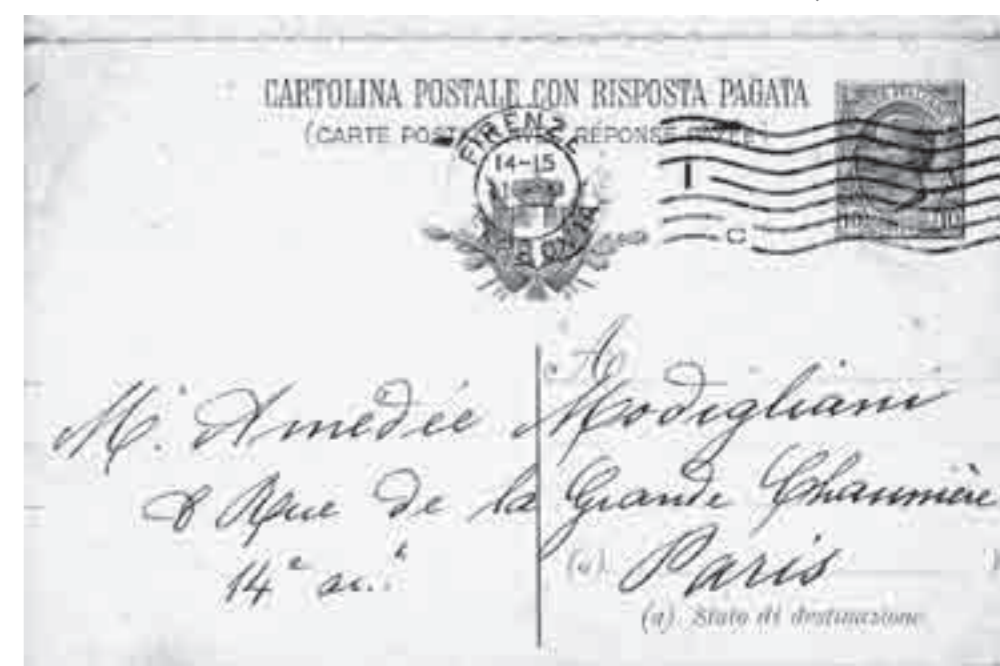 CARTOLINA POSTALE CON RISPOSTA PAGATA
(CARTE POSTALE AVEC RÉPONSE PAYÉE)
FIRENZE
14-15
A
M. Amedée Modigliani
8 Rue de la Grande Chaumière
14e
(a) Paris
(a) Stato di destinazione